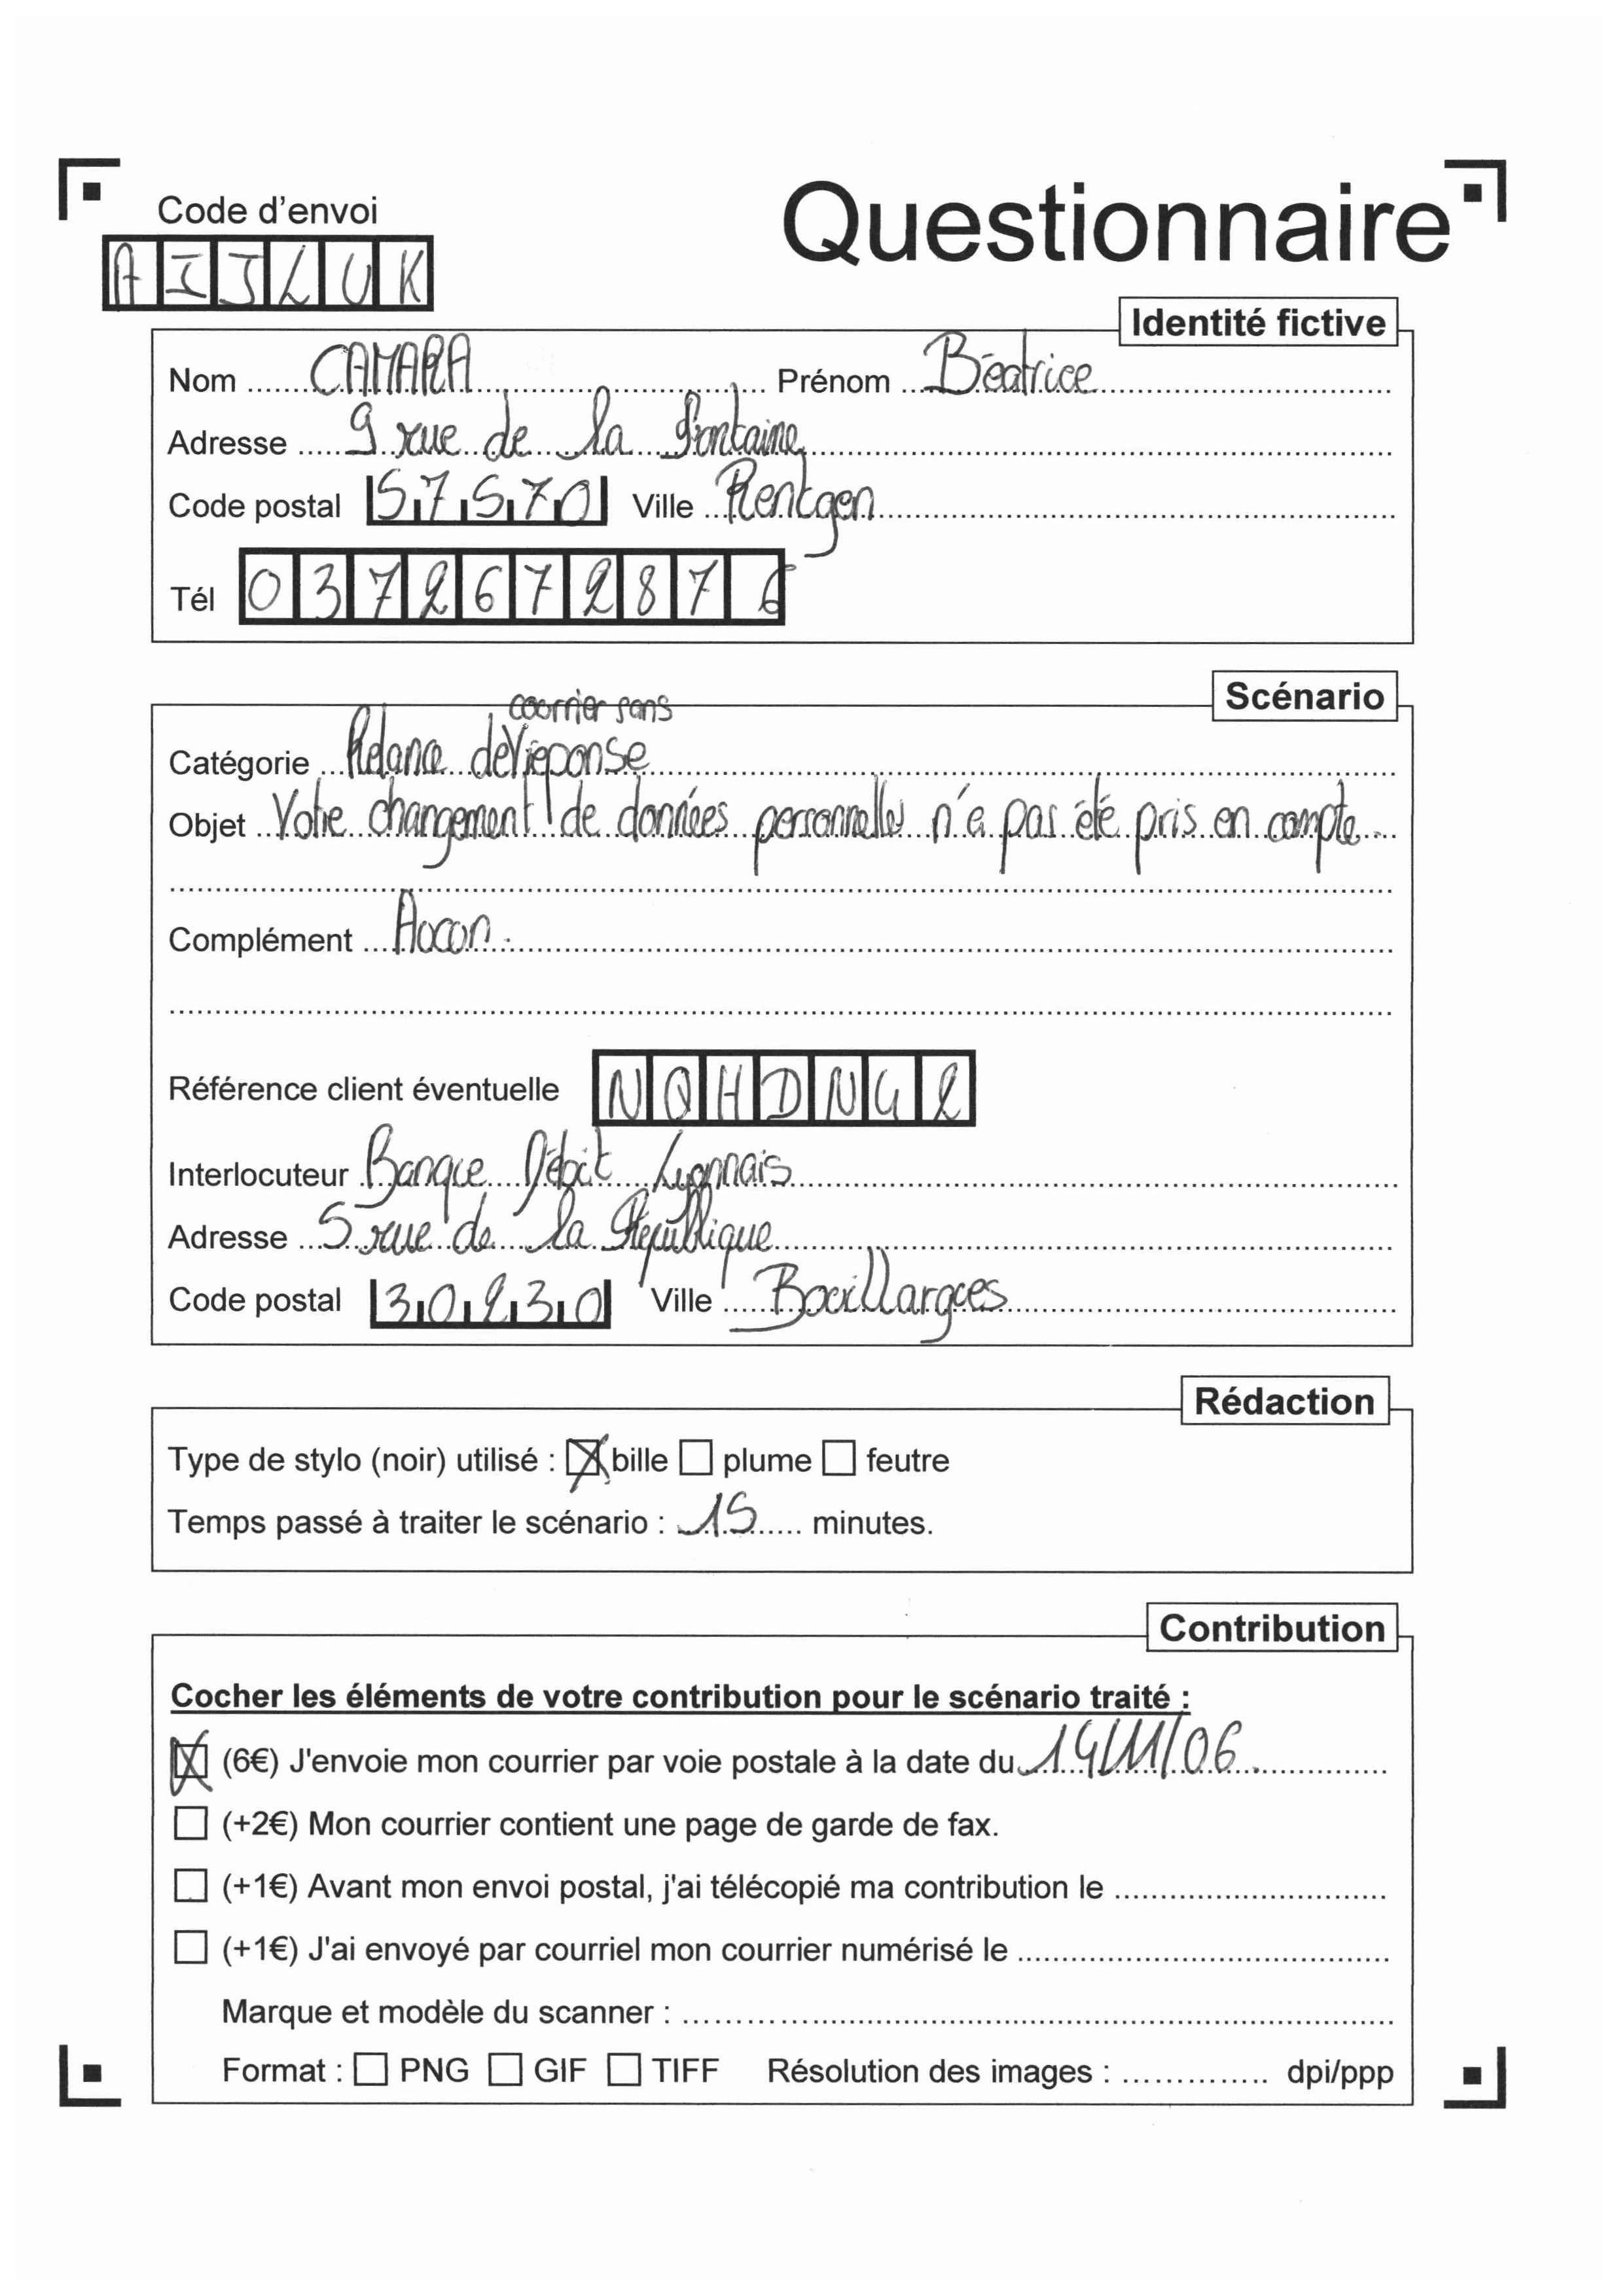 Code d'envoi
Questionnaire
A I J L U K
Identité fictive
Nom CAMARA Prénom Béatrice
Adresse 9 rue de la fontaine
Code postal 57570 Ville Rentgen
Tél 0372672876
Scénario
courrier sans
Catégorie Relance de réponse
Objet Votre changement de données personnelles n'a pas été pris en compte
Complément Aucun.
Référence client éventuelle
Interlocuteur Banque Débit Lyonnais
Adresse 5 rue de la République
Code postal 30230 Ville Bouillargues
Rédaction
Type de stylo (noir) utilisé : bille plume feutre
Temps passé à traiter le scénario : 15 minutes.
Contribution
Cocher les éléments de votre contribution pour le scénario traité :
(6€) J'envoie mon courrier par voie postale à la date du 14/11/06
(+2€) Mon courrier contient une page de garde de fax.
(+1€) Avant mon envoi postal, j'ai télécopié ma contribution le
(+1€) J'ai envoyé par courriel mon courrier numérisé le
Marque et modèle du scanner :
Format : PNG GIF TIFF Résolution des images : dpi/ppp